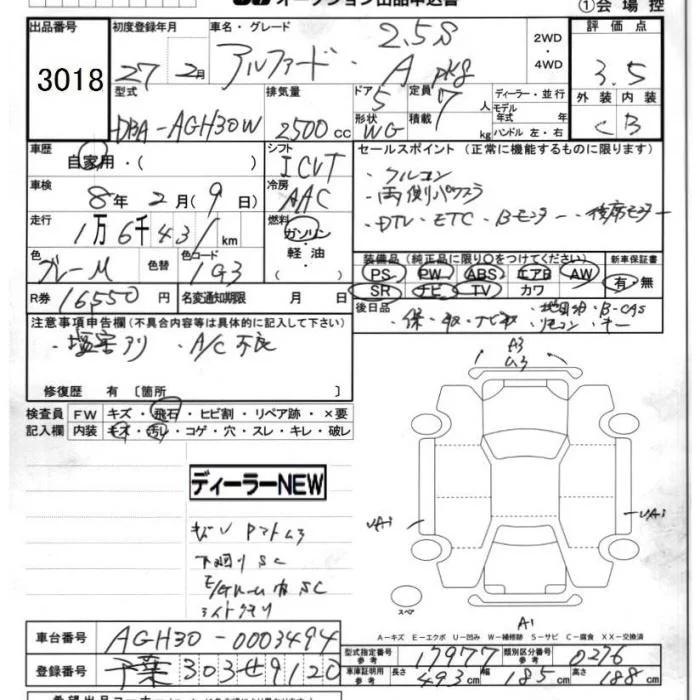 オークション出品申込書 ①会場控
出品番号 初度登録年月 車名・グレード 2WD ・4WD 評価点
3018 27年2月 アルファード・2.5S A pkg 3.5
型式 排気量 ドア 定員 ディーラー・並行 外装 内装
DBA-AGH30W 2500cc 5 7人 モデル年式 年式 C B
形状 積載 kg ハンドル 左・右
WG
車歴 シフト セールスポイント(正常に機能するものに限ります)
自家用・( ) ICVT ・フルコン
車検 冷房 ・両側パワスラ
8年2月(9日) AAC ・DTV・ETC・Bモニター・後席モニター
走行 燃料
1万6千431km ガソリン・軽油
色 色替 色コード 装備品(純正品に限り○をつけてください) 新車保証書
ブルーM 1G3 PS PW ABS エアB AW 有・無
SR ナビ TV カワ
R券 16550円 名変通知期限 月 日 後日品
・保・取・ナビ取・地図・B-CAS
・リモコン・キー
注意事項申告欄(不具合内容等は具体的に記入して下さい)
・塩害アリ ・A/C不良
修復歴 有〔箇所 〕
検査員 FW キズ・飛石・ヒビ割・リペア跡・×要
記入欄 内装 キズ・汚れ・コゲ・穴・スレ・キレ・破レ
A3
ム3
ディーラーNEW
下廻りSC
E/Gルーム内SC
UA1 UA1
スペア
A1
A-キズ E-エクボ U-凹み W-補修跡 S-サビ C-腐食 XX-交換済
車台番号 AGH30-0003494
型式指定番号 参考 17977 類別区分番号 参考 0276
登録番号 千葉 303 せ 9120
車庫証明用 参考 長さ 493cm 幅 185cm 高さ 188cm